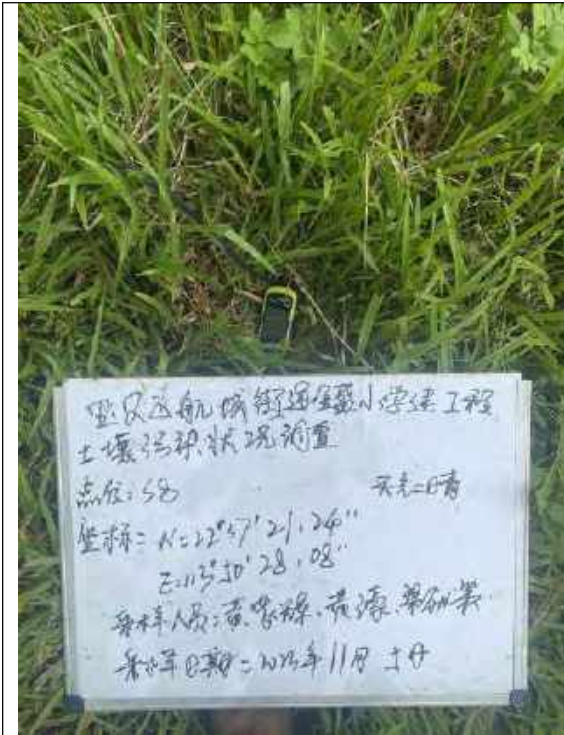 宝安区航城街道金蓝小学建工程
土壤污染状况调查
点位：S8 天气：晴
坐标：N：22°37'21.24"
E：113°50'28.08"
采样人员：黄
采样日期：2023年11月